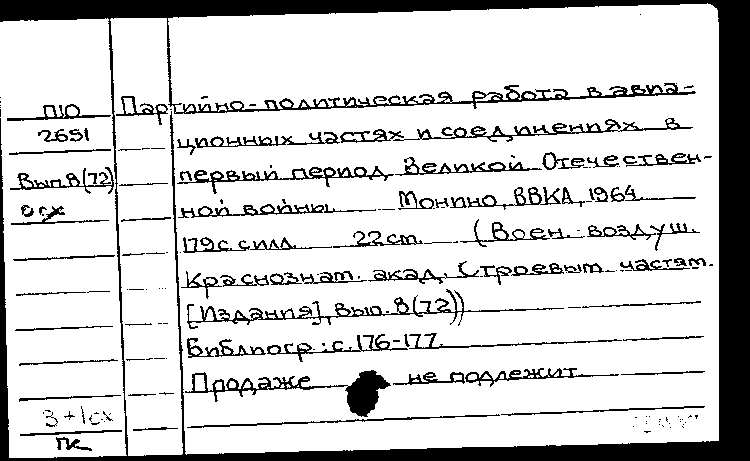 П10
2651
Вып.8(72)
осх
Партийно-политическая работа в авиа-
ционных частях и соединениях в
первый период Великой Отечествен-
ной войны. Монино, ВВКА, 1964.
179с. илл. 22см. (Воен.-воздуш.
Краснознам. акад. Строевым частям.
[Издания], Вып. 8(72))
Библиогр: с.176-177.
Продаже не подлежит.
3+1сх
ПК